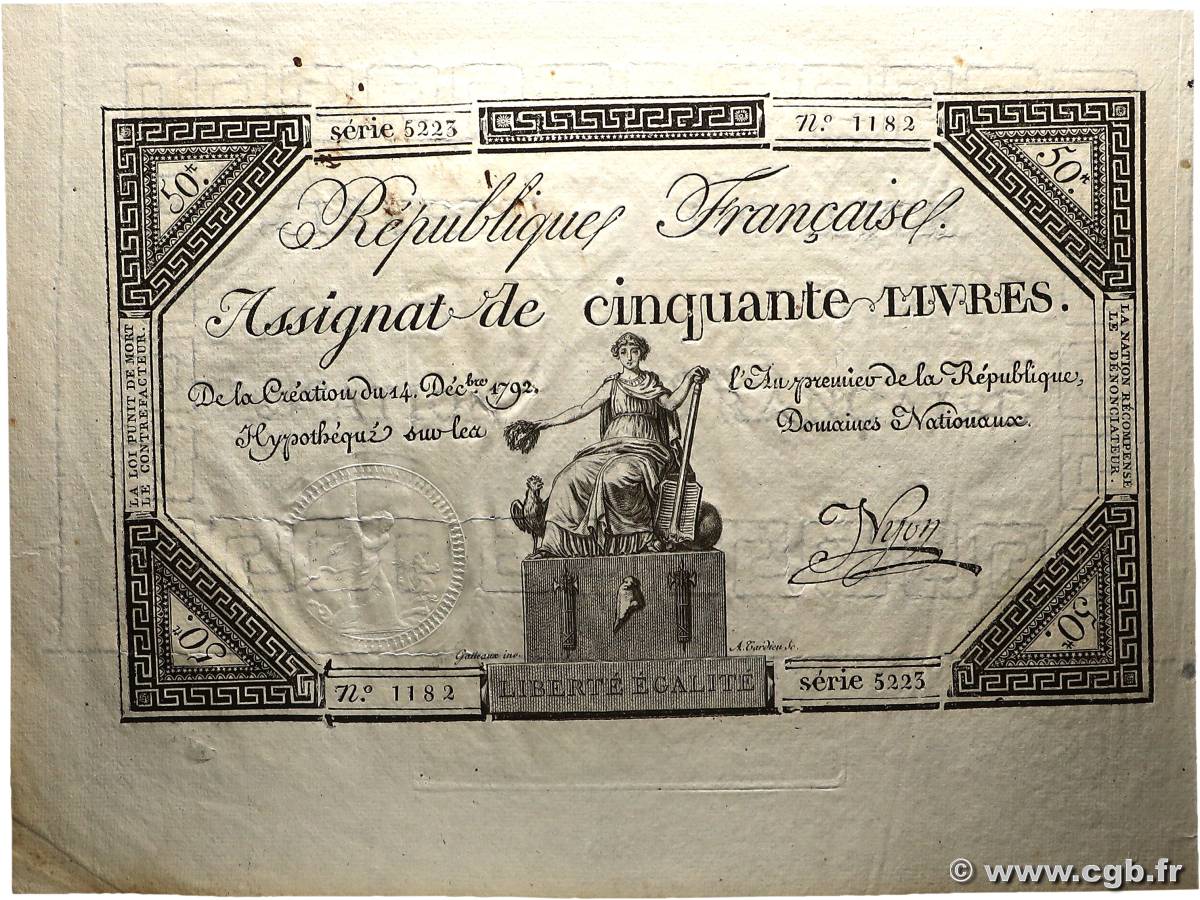 série 5223
N.° 1182
50.ᵗᵗ
50.ᵗᵗ
République Française.
Assignat de cinquante LIVRES.
De la Création du 14. Déc.bre 1792.
l'An premier de la République,
Hypothéqué sur les
Domaines Nationaux.
LA LOI PUNIT DE MORT
LE CONTREFACTEUR.
LA NATION RÉCOMPENSE
LE DÉNONCIATEUR.
Nyon
50.ᵗᵗ
50.ᵗᵗ
Gatteaux inv.
A. Tardieu Sc.
N.° 1182
LIBERTÉ EGALITÉ
série 5223
© www.cgb.fr